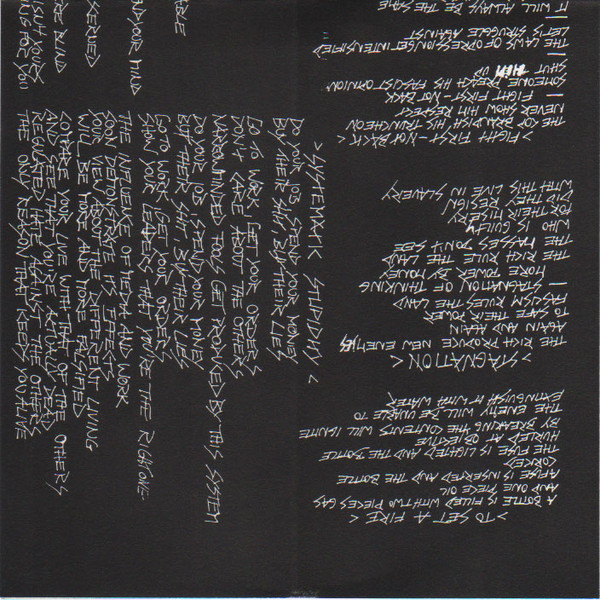 >TO SET A FIRE<
A BOTTLE IS FILLED WITH TWO PIECES GAS
AND ONE PIECE OIL
A FUSE IS INSERTED AND THE BOTTLE
CORKED
THE FUSE IS LIGHTED AND THE BOTTLE
HURLED AT OBJECTIVE
BY BREAKING THE CONTENTS WILL IGNITE
THE ENEMY WILL BE UNABLE TO
EXTINGUISH IT WITH WATER
>STAGNATION<
THE RICH PRODUCE NEW ENEMIES
AGAIN AND AGAIN
TO SAFE THEIR POWER
FASCISM RULES THE LAND
— STAGNATION OF THINKING
MORE POWER BY MONEY
THE RICH RULE THE LAND
THE MASSES DON'T SEE
WHO IS GUILTY
FOR THEIR MISERY
DID THEY RESIGN
WITH THIS LIVE IN SLAVERY
>FIGHT FIRST-NOT BACK<
THE COP BRANDISH HIS TRUNCHEON
NEVER SHOW HIM RESPECT
FIGHT FIRST - NOT BACK
—
SOMEONE PREACH HIS FASCIST OPINION
SHUT THEM UP
—
THE LAWS OF OPRESSION GET INTENSIFIED
LET'S STRUGGLE AGAINST
—
IT WILL ALWAYS BE THE SAME
>SYSTEMATIC STUPIDITY<
DO YOUR JOB, SPEND YOUR MONEY
BUY THEIR SHIT, BUY THEIR LIES
GO TO WORK, GET YOUR ORDERS
DON'T CARE ABOUT THE OTHERS
NARROWMINDED FOOLS GET PRODUCED BY THIS SYSTEM
DO YOUR JOB, SPEND YOUR MONEY
BUY THEIR SHIT, BUY THEIR LIES
GO TO WORK, GET YOUR ORDERS
SHOW YOUR LEADERS THAT YOU'RE THE RIGHT ONE
THE INFLUENCE OF MEDIA AND WORK
SOON DEMONSTRATE ITS EFFECTS
YOUR VIEW ABOUT THE DIFFERENT LIVING
WILL BE MORE AND MORE FALSIFIED
COMPARE YOUR LIVE WITH THAT OF THE OTHERS
AND SEE THAT YOU'RE ACTUALLY DEAD
REGULATED HATE AGAINST THE OTHERS
THE ONLY REASON THAT KEEPS YOU ALIVE
YOUR MIND
BLIND
FOR YOU